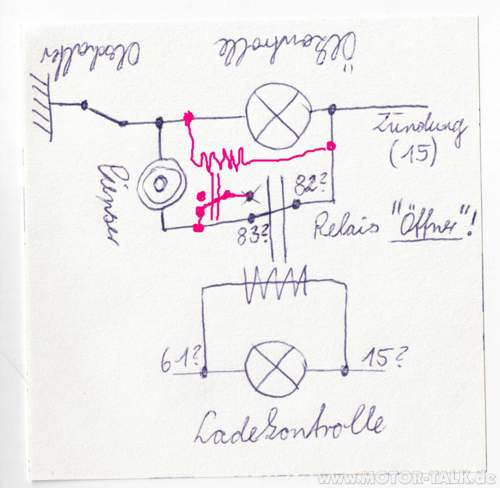 Ölschalter
Ölkontrolle
Zündung
(15)
Piepser
82?
83?
Relais "Öffner"!
61?
15?
Ladekontrolle
www.MOTOR-TALK.de